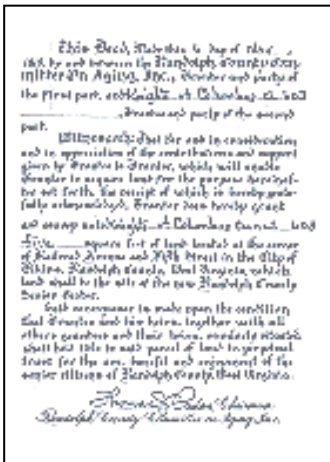 This Deed, Made this 16 day of
by and between the Randolph County Com-
mittee On Aging, Inc., Grantor and party of
the first part, and Knights of Columbus
, Grantee and party of the second
part.
Witnesseth: That for and in consideration
and in appreciation of the contributions and support
given by Grantee to Grantor, which will enable
Grantor to acquire land for the purpose hereinaf-
ter set forth, the receipt of which is hereby grate-
fully acknowledged, Grantor does hereby grant
and convey unto Knights of Columbus Council
five square feet of land located at the corner
of Railroad Avenue and Fifth Street in the City of
Elkins, Randolph County, West Virginia, which
land shall be the site of the new Randolph County
Senior Center.
Said conveyance is made upon the condition
that Grantee and his heirs, together with all
other grantees and their heirs, similarly situated
shall hold title to said parcel of land in perpetual
trust for the use, benefit and enjoyment of the
senior citizens of Randolph County, West Virginia.
Chairman
Randolph County Committee on Aging, Inc.